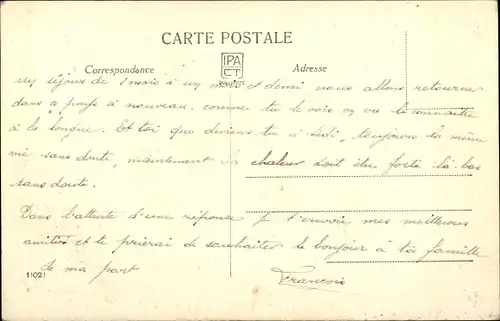 CARTE POSTALE
IPA
CT
Correspondance
Adresse
un séjour de 1 mois à un mois et demi nous allons retourner
dans ce pays à nouveau, comme tu le vois on va le connaître
à la longue. Et toi que deviens tu à Sedi, toujours la même
vie sans doute, maintenant la chaleur doit être forte là-bas
sans doute.
Dans l'attente d'une réponse je t'envoie mes meilleures
amitiés et te prierai de souhaiter le bonjour à ta famille
de ma part
François
11021